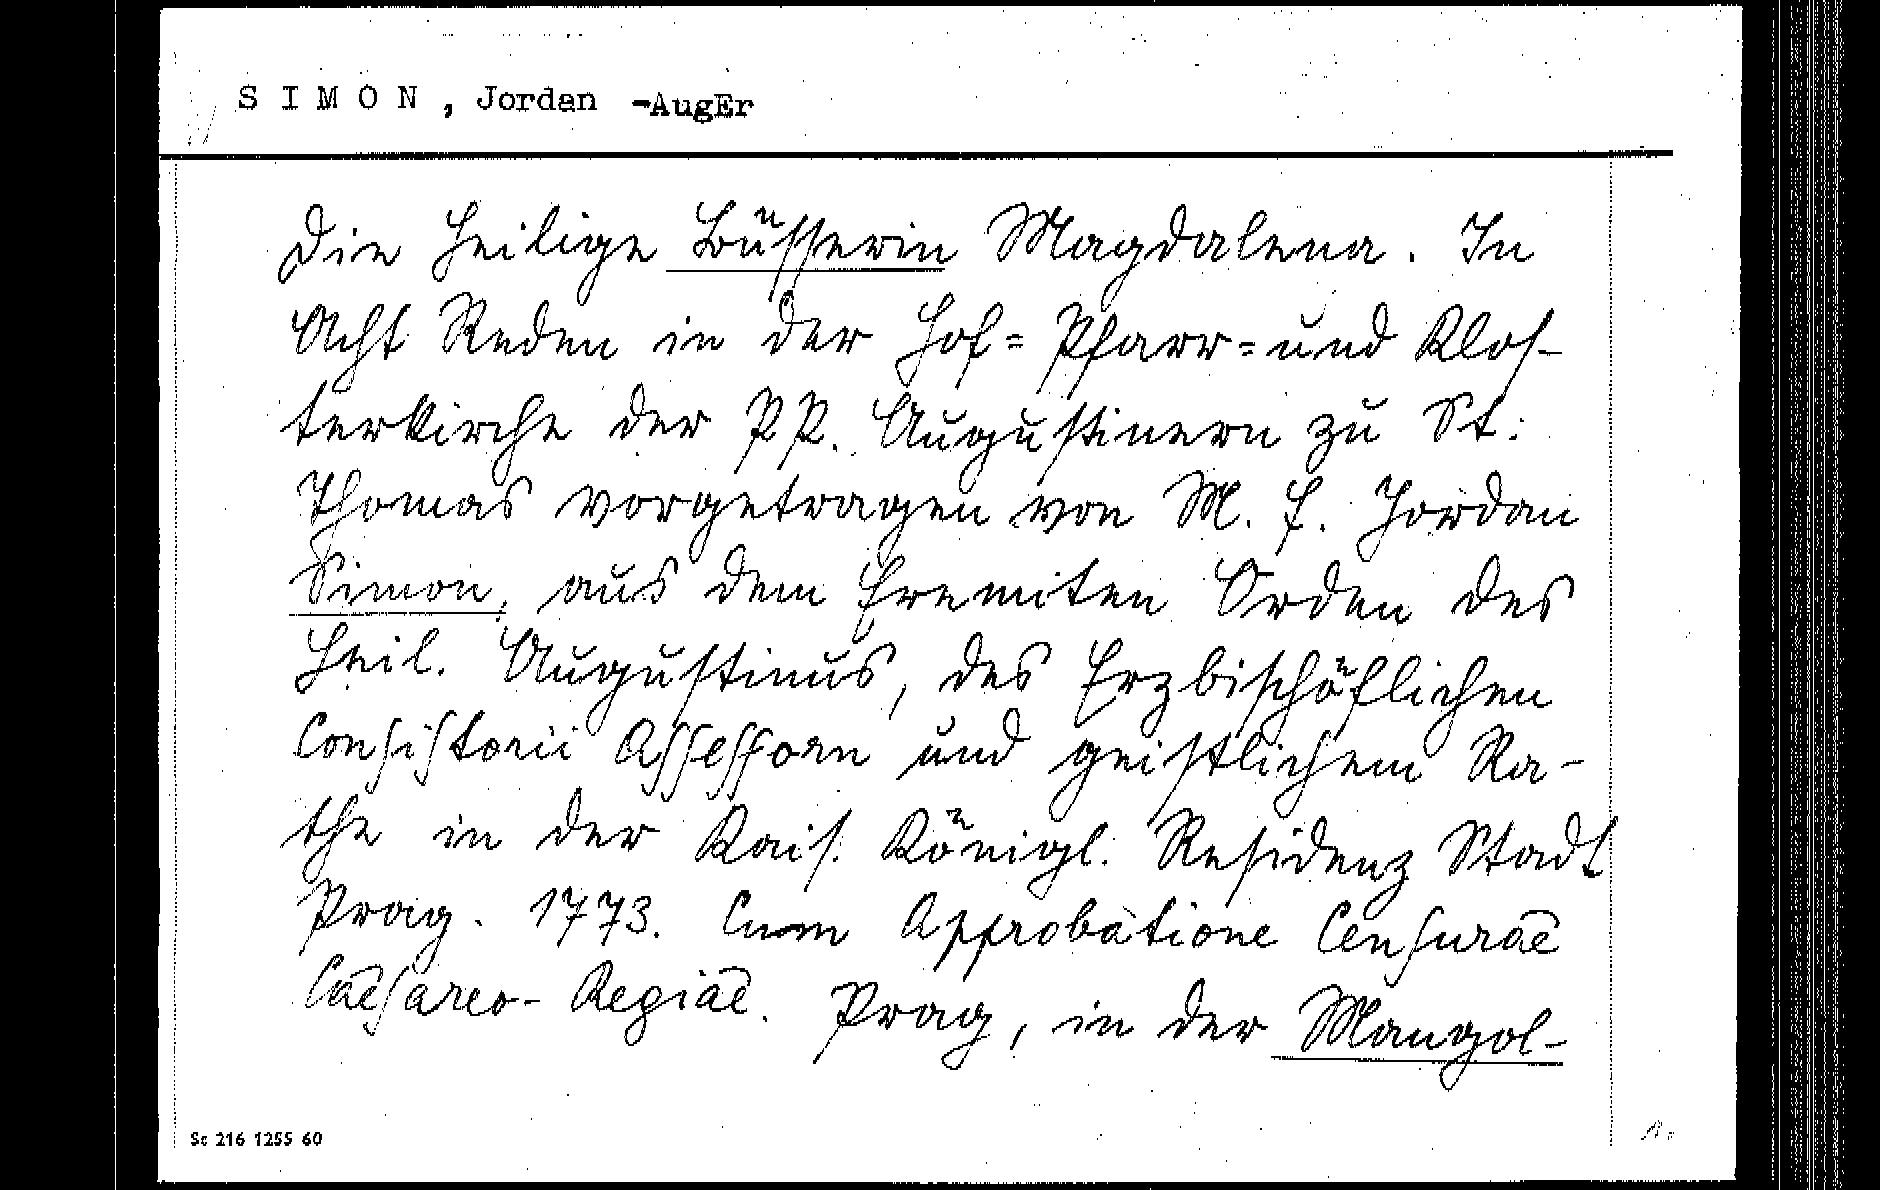 S I M O N , Jordan -AugEr
Die heilige Büsserin Magdalena. In
Acht Reden in der Hof= Pfarr=und Klos-
terkirche der PP. Augustinern zu St:
Thomas vorgetragen von M. P. Jordan
Simon, aus dem Eremiten Orden des
Heil. Augustinus, des Erzbischöflichen
Consistorii Assessorn und geistlichem Ra-
the in der Kais. Königl. Residenz Stadt
Prag. 1773. Cum Approbatione Censurae
Caesareo-Regiae. Prag, in der Mangol-
Sc 216 1255 60
1.